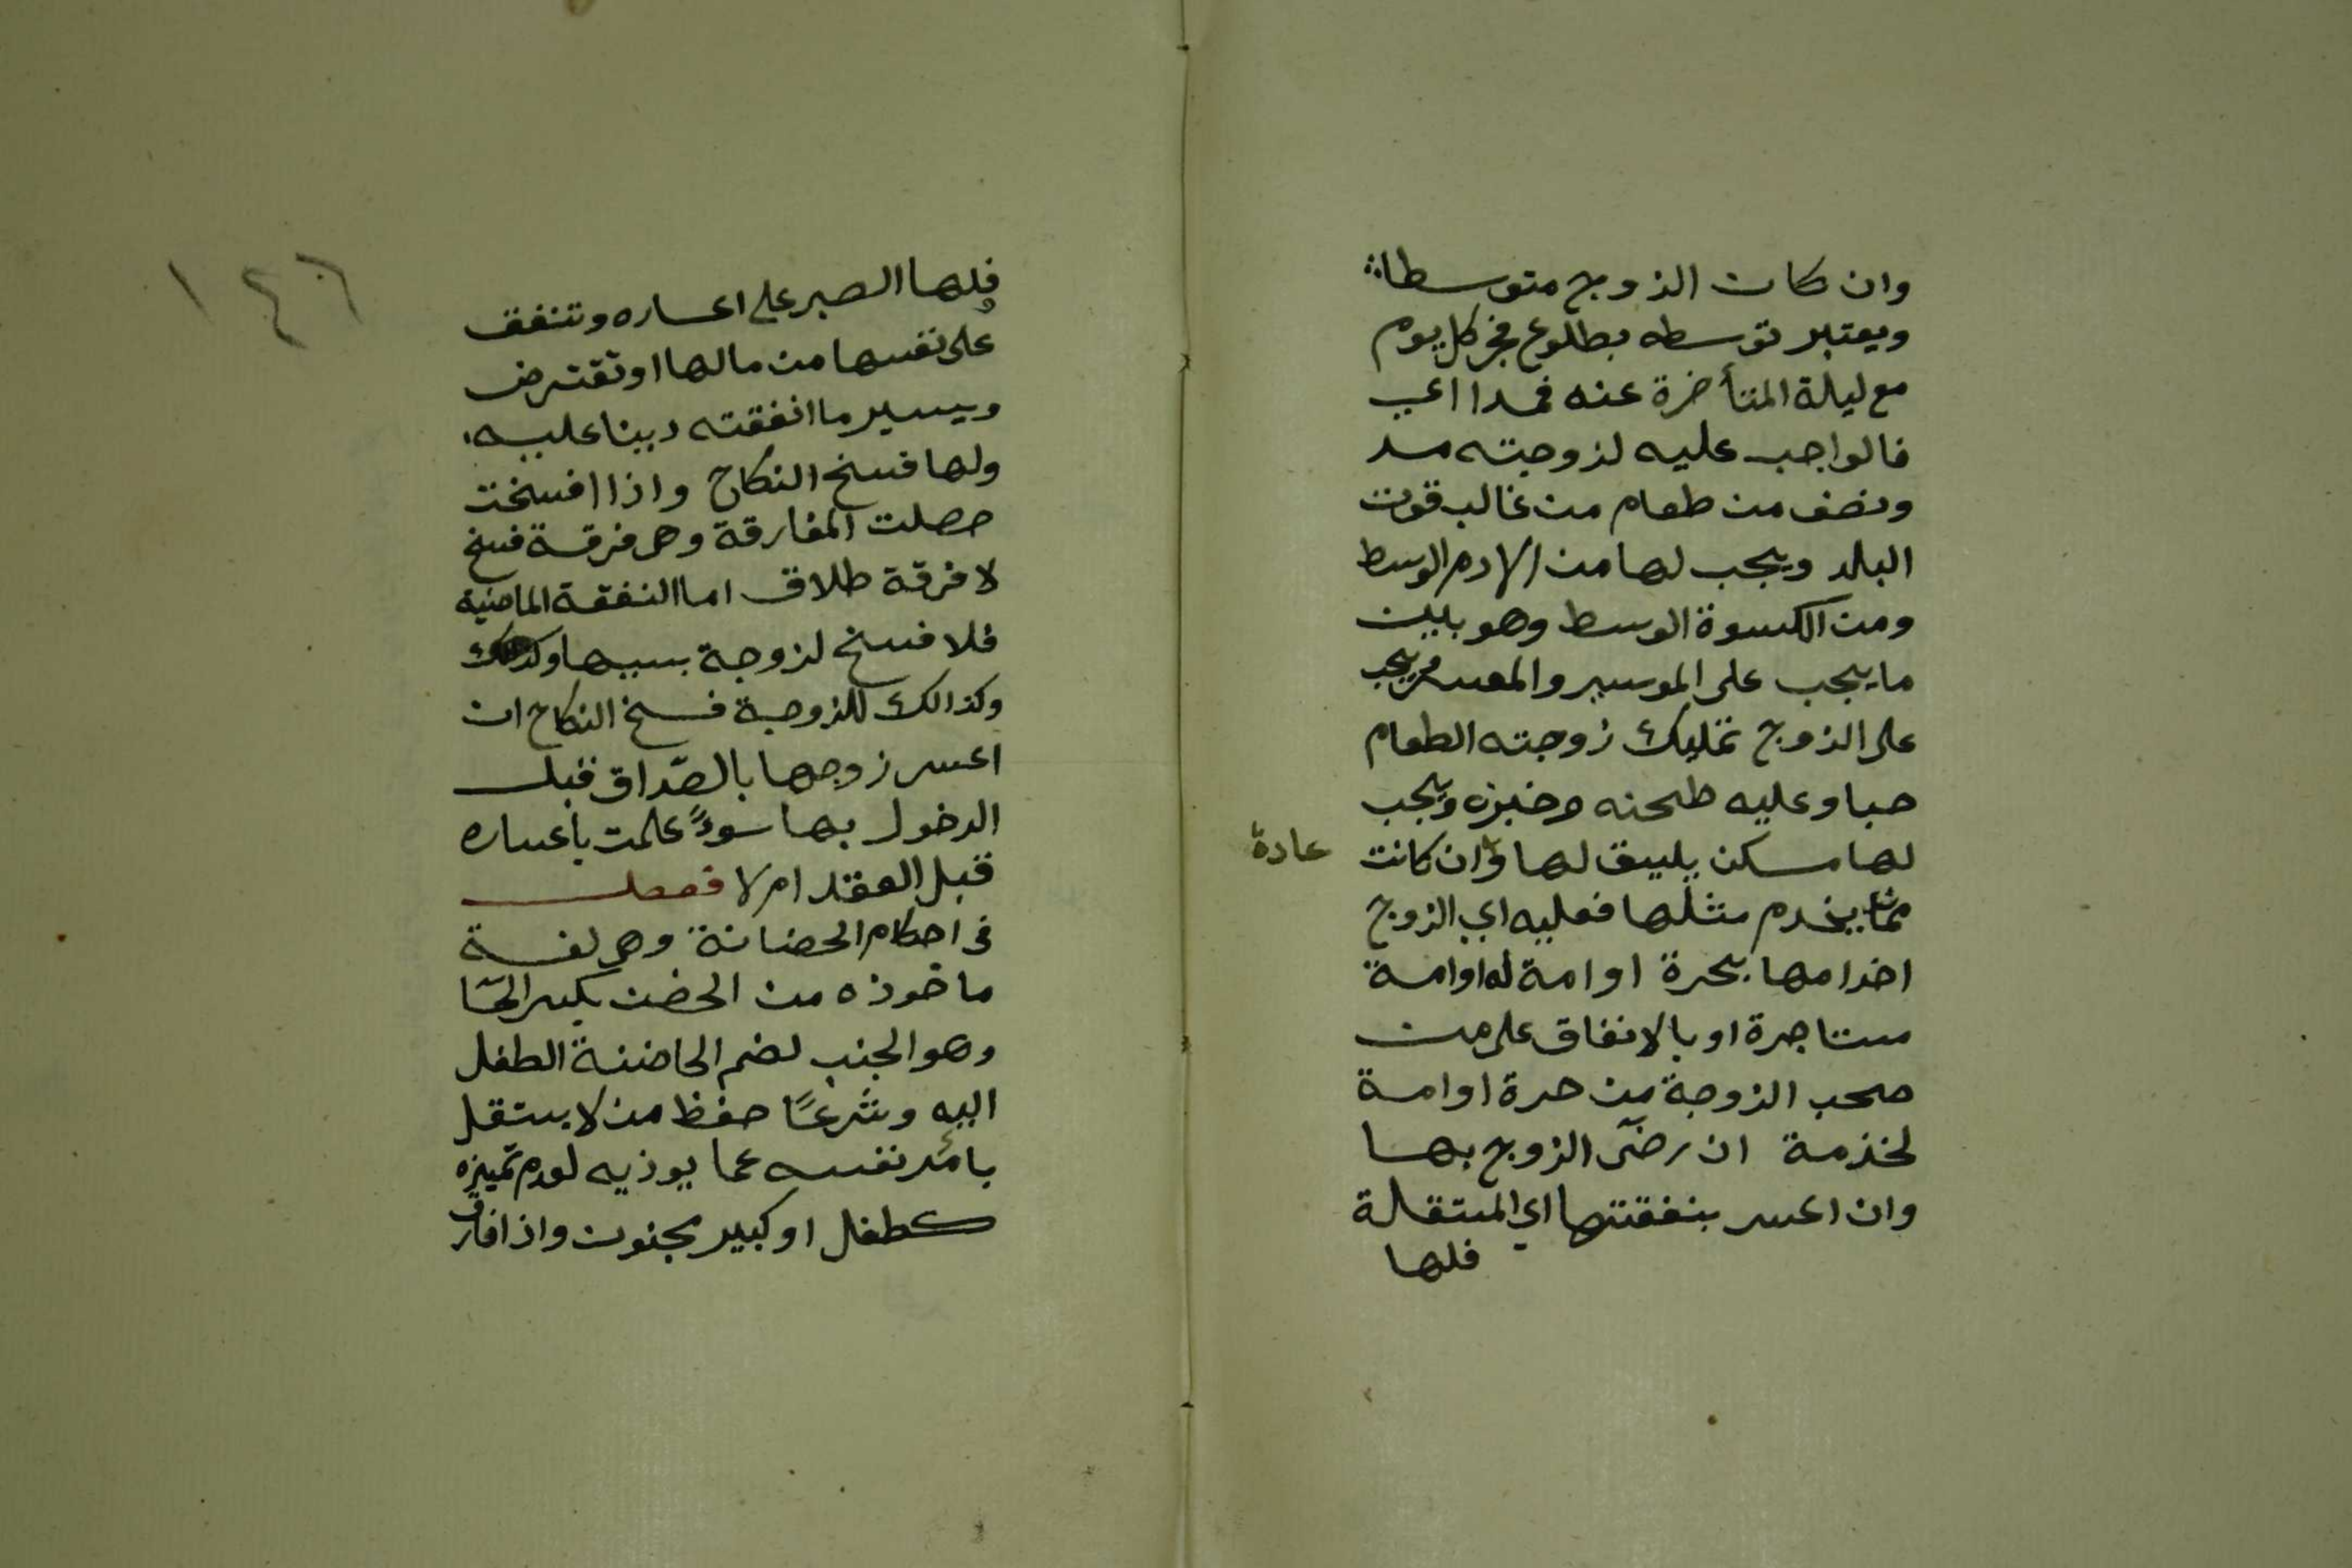 وان كان الزوج متوسطا
ويعتبر توسطه بطلوع فجر كل يوم
مع ليلة المتأخرة عنه
فالواجب عليه لزوجته مد
ونصف من طعام من غالب قوت
البلد ويجب لها من الادم الوسط
ومن الكسوة الوسط وهو بين
ما يجب على الموسر والمعسر ويجب
على الزوج تمليك زوجته الطعام
حبا وعليه طحنه وخبزه ويجب
لها مسكن يليق لها وان كانت
عادة
ممن يخدم مثلها فعليه اي الزوج
اخدامها بحرة او امة له او امة
مستاجرة او بالانفاق على من
صحب الزوجة من حرة او امة
لخذمة ان رضى الزوج بها
وان اعسر بنفقتها اي المستقلة
فلها
١٤٦
فلها الصبر على اعساره وتنفق
على نفسها من مالها او تقترض
ويسير ما انفقته دينا عليه
ولها فسخ النكاح واذا افسخت
حصلت المفارقة وهى فرقة فسخ
لا فرقة طلاق اما النفقة الماضية
فلا فسخ لزوجة بسببها
وكذالك للزوجة فسخ النكاح ان
اعسر زوجها بالصداق قبل
الدخول بها سوءً علمت باعساره
قبل العقد ام لا فصل
فى احكام الحضانة وهى لغة
ماخوذه من الحضن بكسر الحا
وهو الجنب لضم الحاضنة الطفل
اليه وشرعًا حفظ من لا يستقل
بامر نفسه عما يوذيه لعدم تميزه
كطفل او كبير مجنون واذا فارق